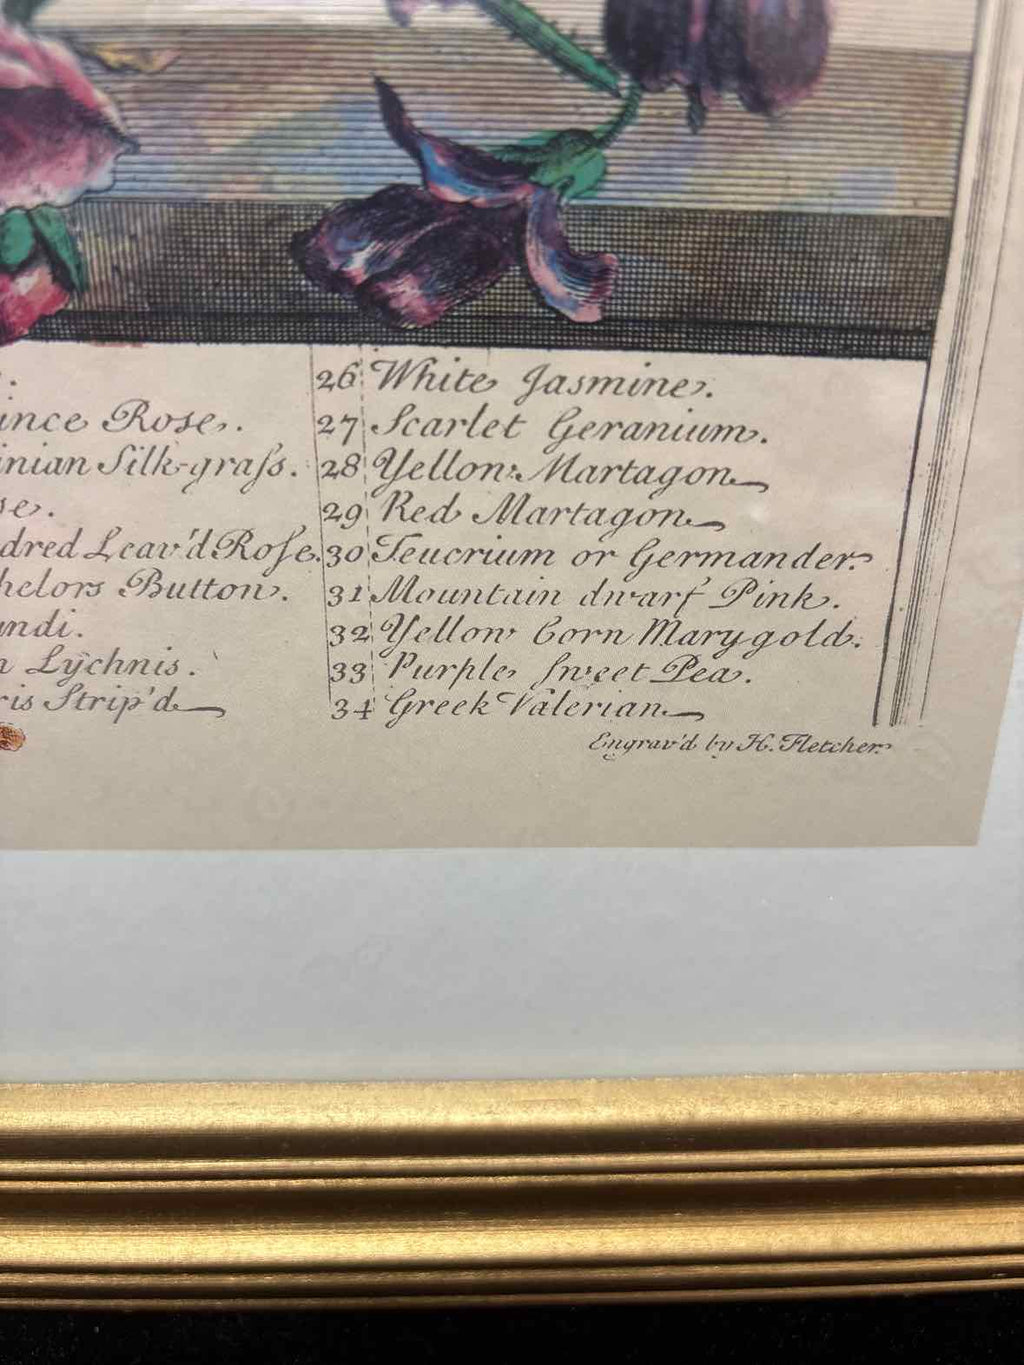 ince Rose.
inian Silk-graſs.
se.
dred Leav'd Roſe.
helors Button.
undi.
n Lychnis.
ris Strip'd
26 White Jasmine.
27 Scarlet Geranium.
28 Yellow Martagon
29 Red Martagon
30 Teucrium or Germander.
31 Mountain dwarf Pink.
32 Yellow Corn Marygold.
33 Purple Sweet Pea.
34 Greek Valerian
Engrav'd by H. Fletcher.